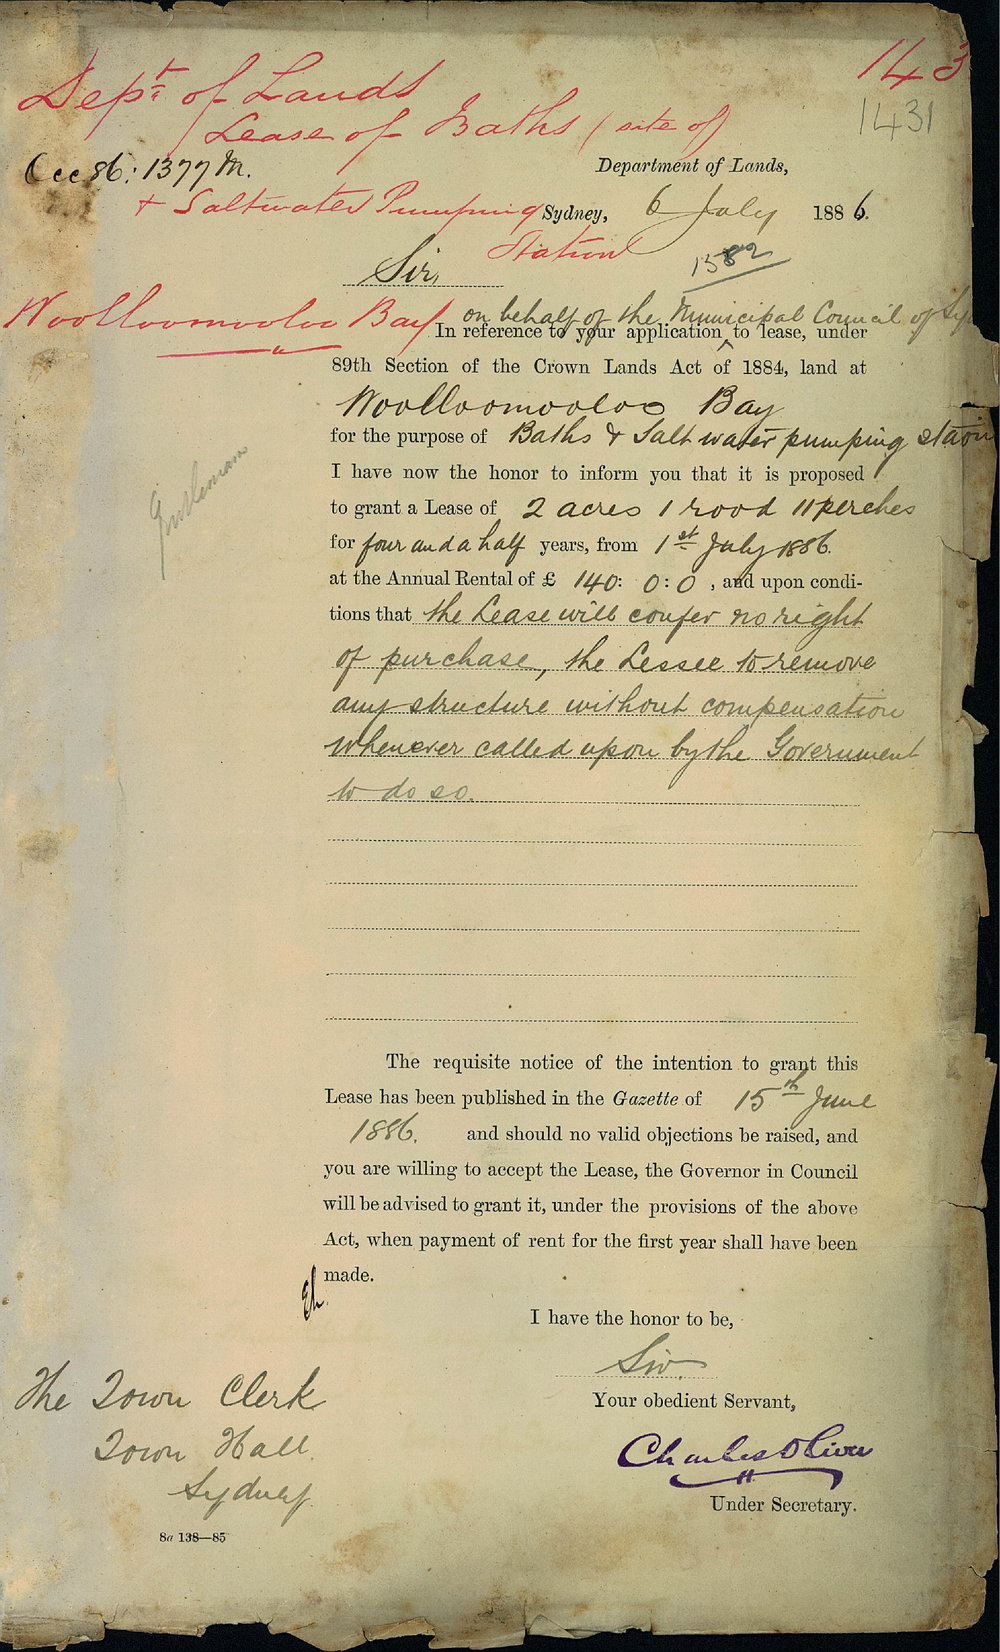 Dept of Lands
143
Lease of Baths (site of)
1431
Occ 86: 1377 M.
Department of Lands,
+ Saltwater Pumping
Sydney, 6 July 1886.
Station
1382
Sir,
Woolloomooloo Bay
on behalf of the Municipal Council of Sy
In reference to your application ^ to lease, under
89th Section of the Crown Lands Act of 1884, land at
Woolloomooloo Bay
for the purpose of Baths & Salt water pumping station
I have now the honor to inform you that it is proposed
Gentleman
to grant a Lease of 2 acres 1 rood 11 perches
for four and a half years, from 1st July 1886.
at the Annual Rental of £ 140: 0: 0, and upon condi-
tions that the Lease will confer no right
of purchase, the Lessee to remove
any structure without compensation
whenever called upon by the Government
to do so.
The requisite notice of the intention to grant this
Lease has been published in the Gazette of 15th June
1886. and should no valid objections be raised, and
you are willing to accept the Lease, the Governor in Council
will be advised to grant it, under the provisions of the above
Act, when payment of rent for the first year shall have been
made.
I have the honor to be,
Sir,
The Town Clerk
Your obedient Servant,
Town Hall
Charles Oliver
Sydney
Under Secretary.
8a 138—85